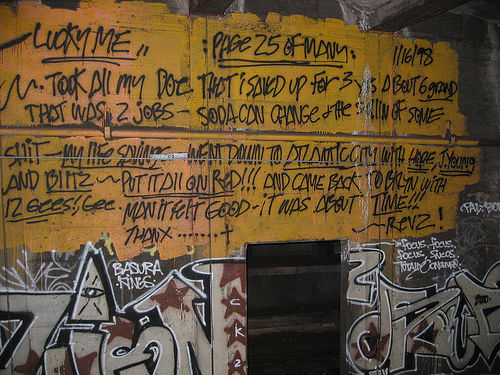 - LUCKY ME,, : PAGE 25 OF MANY: 1/16/98
TOOK All my DOE THAT i SAVED UP FOR 3 yrs ABOUT 6 grAND
THAT WAS 2 JOBS - SODA CAN CHANGE & the SELLIN OF SOME
SHIT - MY life SAVINGS WENT DOWN TO ATLANTIC CITY WITH HOPE, J.YOUNG
AND BLITZ ~ PUT IT All ON RED!!! AND CAME BACK TO BKLYN WITH
12 GEES! Gee. MAN IT FELT GOOD - iT WAS ABOUT TIME!!!
THANX ........† - REVZ!
BASURA
KINGS
FOCUS, FOCUS,
FOCUS, SMOS
C
K
2
2000.